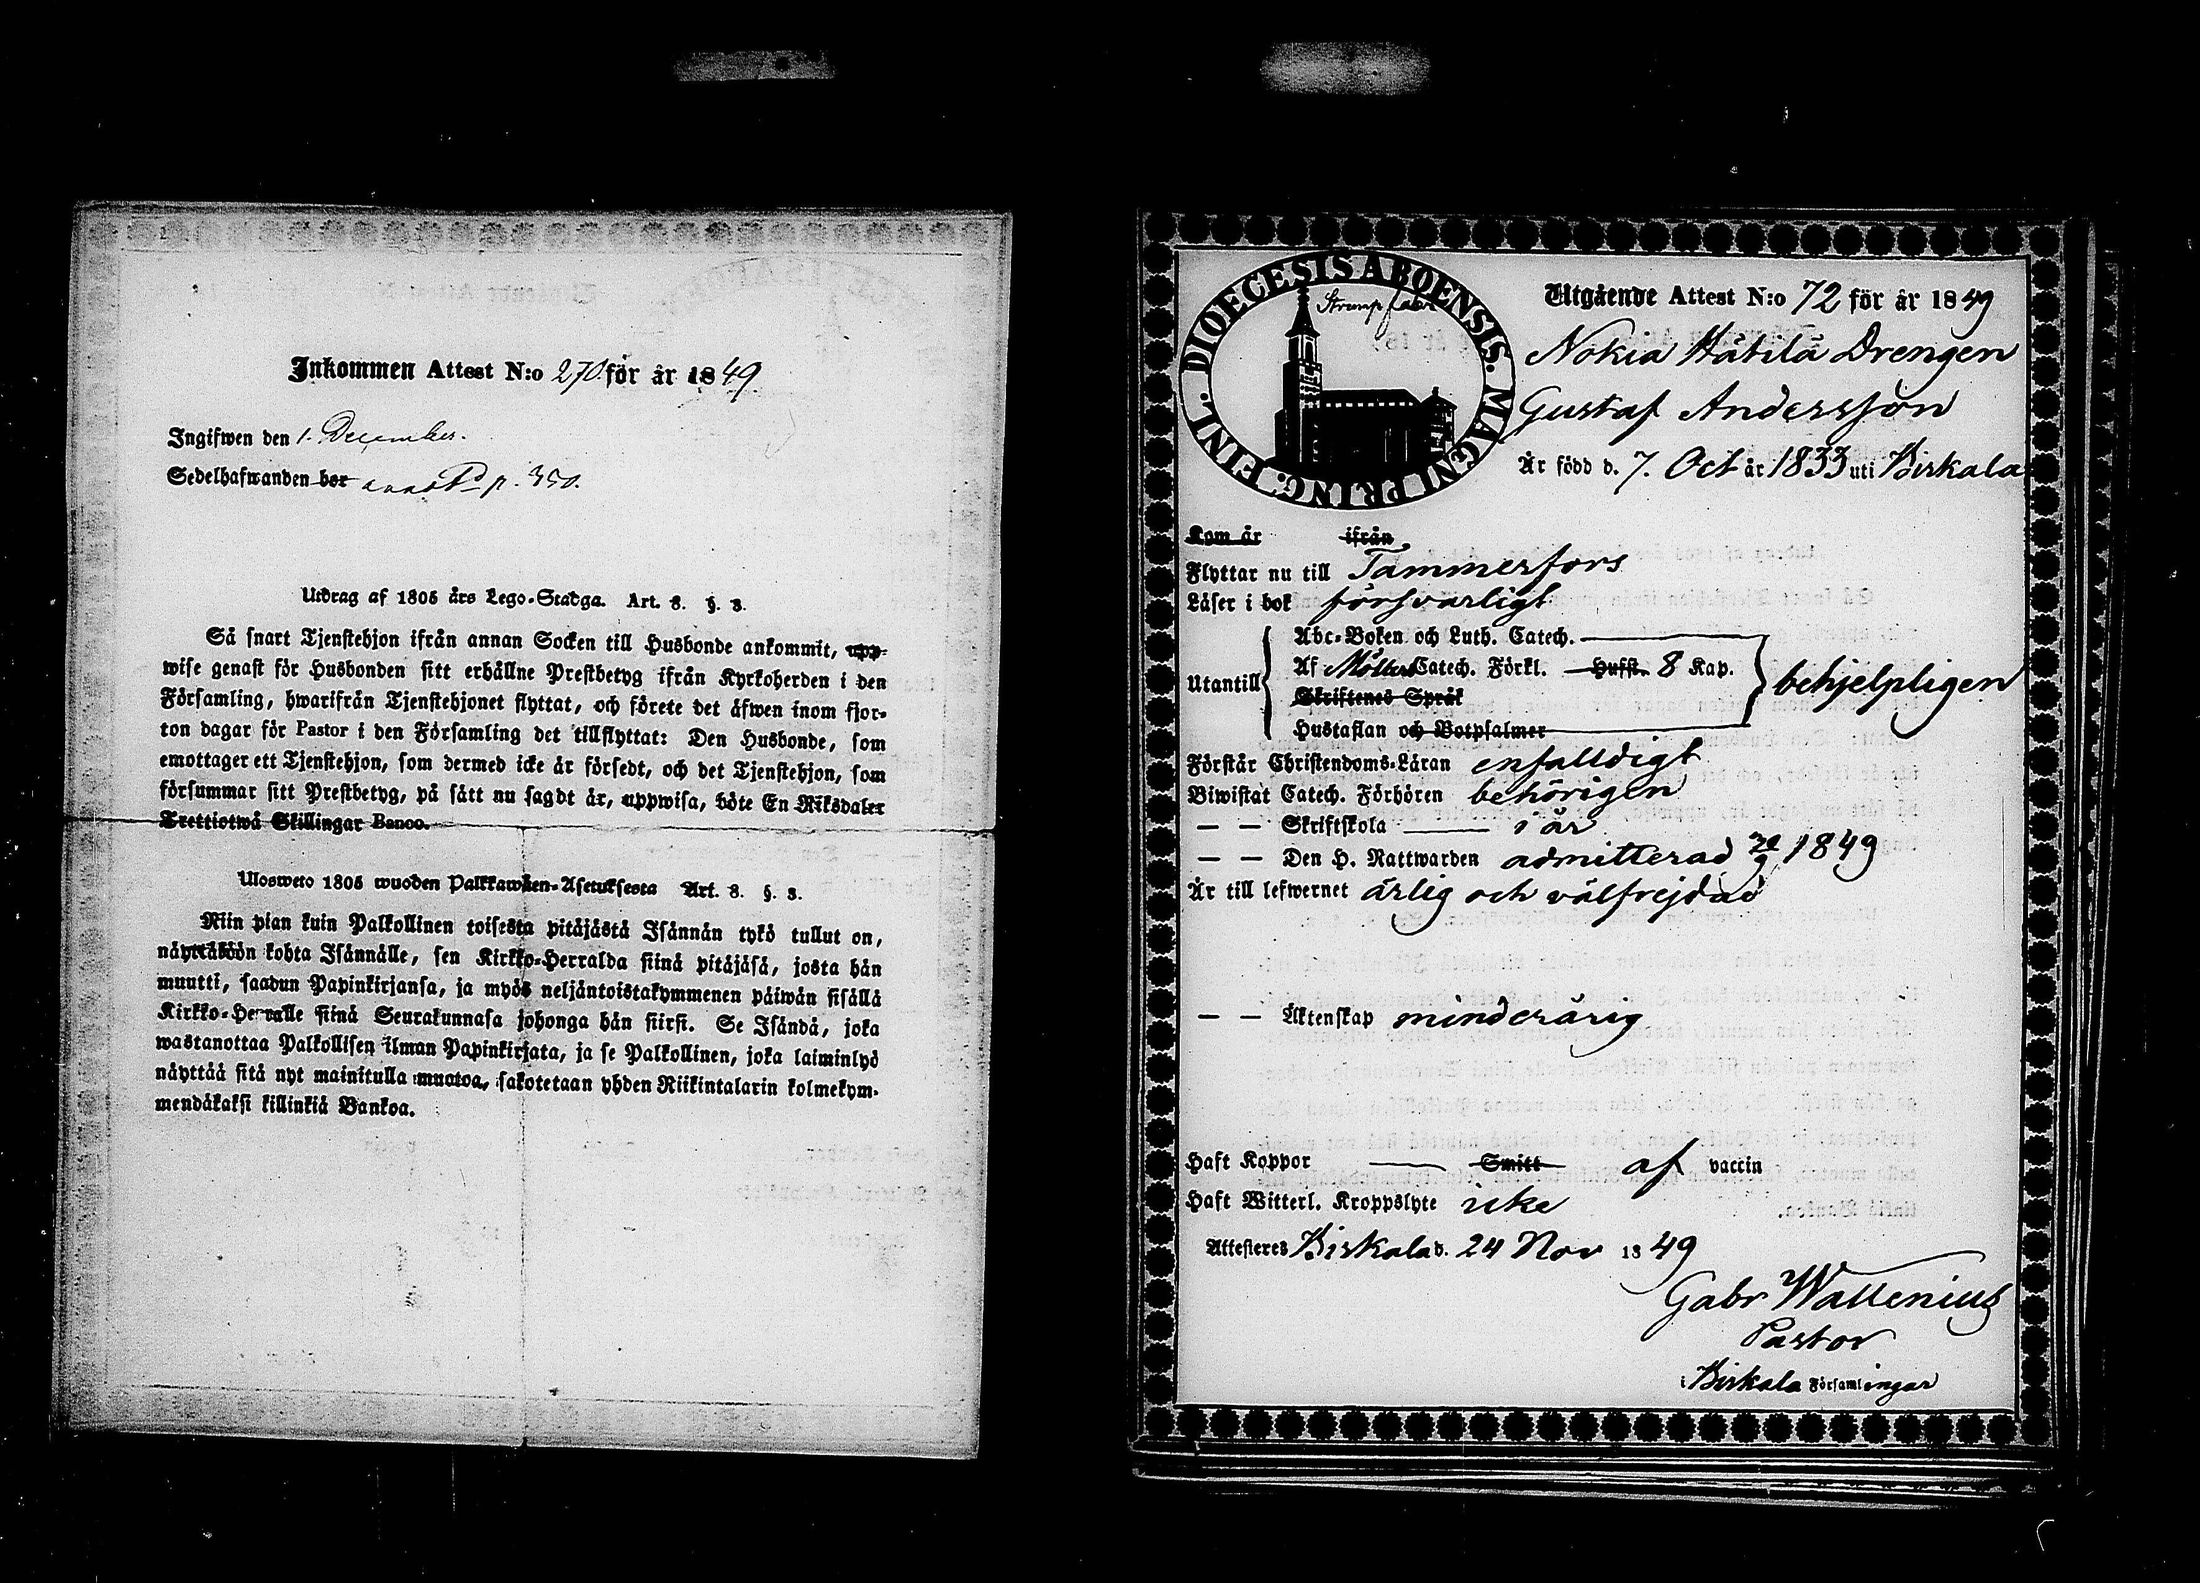 Inkommen Attest N:o 270 för år 1849.
Ingifwen den 1. December.
Sedelhafwanden bor p. 350.
Utdrag af 1805 års Lego-Stadga. Art. 8. §. 3.
Så snart Tjenstehjon ifrån annan Socken till Husbonde ankommit, upp-
wise genast för Husbonden sitt erhållne Prestbetyg ifrån Kyrkoherden i den
Församling, hwarifrån Tjenstehjonet flyttat, och förete det äfwen inom fjor-
ton dagar för Pastor i den Församling det tillflyttat: Den Husbonde, som
emottager ett Tjenstehjon, som dermed icke är försedt, och det Tjenstehjon, som
försummar sitt Prestbetyg, på sätt nu sagdt är, uppwisa, böte En Riksdaler
Trettiotwå Skillingar Banco.
Ulosweto 1805 wuoden Palkkawäen-Asetuksesta Art. 8. §. 3.
Niin pian kuin Palkollinen toisesta pitäjästä Isännän tykö tullut on,
näyttäköön kohta Isännälle, sen Kirkko-Herralda siinä pitäjäsä, josta hän
muutti, saadun Papinkirjansa, ja myös neljäntoistakymmenen päiwän sisällä
Kirkko-Herralle siinä Seurakunnasa johonga hän siirsi. Se Isändä, joka
wastanottaa Palkollisen ilman Papinkirjata, ja se Palkollinen, joka laiminlyö
näyttää sitä nyt mainitulla muotoa, sakotetaan yhden Riikintalarin kolmekym-
mendäkaksi killinkiä Bankoa.
DIOECESIS ABOENSIS. MAGNI PRINC. FINL.
Strumpfabr
Utgående Attest N:o 72 för år 1849
Nokia Hätilä Drengen
Gustaf Andersson
Är född d. 7. Oct år 1833 uti Birkala
Kom år ifrån
Flyttar nu till Tammerfors
Läser i bok försvarligt
Utantill
Abc-Boken och Luth. Catech.
Af Möllers Catech. Förkl. Hufst. 8 Kap.
Skriftenes Språk
Hustaflan och Botpsalmer
behjelpligen
Förstår Christendoms-Läran enfalldigt
Biwistat Catech. Förhören behörigen
— — Skriftskola — i år
— — Den H. Nattwarden admitterad 1849
Är till lefwernet ärlig och välfrejdad
— — Äktenskap minderårig
Haft Koppor — Smitt af vaccin
Haft Witterl. Kroppslyte icke
Attesteres Birkala d. 24 Nov 1849
Gabr Wallenius
Pastor
i Birkala Församlingar